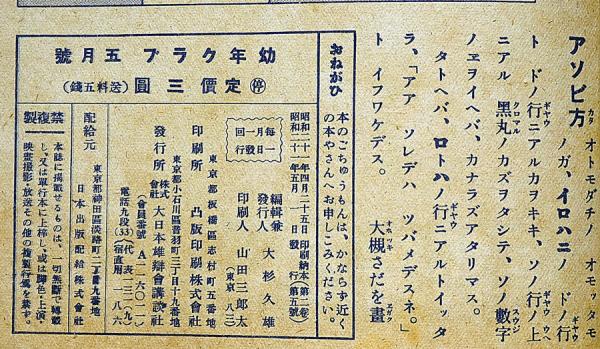 アソビ方
オトモダチノ オモッタモ
ノガ、イロハニノ ドノ行
ト ドノ行ニアルカヲキキ、ソノ行ノ上
ニアル 黒丸ノ カズヲタシテ、ソノ數字
ノヱヲイヘバ、カナラズアタリマス。
タトヘバ、ロトハノ行ニアルトイッタ
ラ、「アア ソレデハ ツバメデスネ。」
ト イフワケデス。
大槻さだを畫
おねがひ
本のごちゅうもんは、かならず近く
の本やさんへお申しこみください。
幼年クラブ 五月號
停 定價三圓(送料五錢)
昭和二十一年四月二十五日 印刷納本(第二卷
昭和二十一年五月一日 發行(第五號)
每月一回一日發行
編輯兼發行人 大杉久雄
印刷人 山田三郎太
(東京 八三)
東京都板橋區志村町五番地
印刷所 凸版印刷株式會社
東京都小石川區音羽町三丁目十九番地
發行所 株式會社 大日本雄辯會講談社
(會員番號 A 一一六〇一一)
電話九段(33)(代表 一三一九)(宿直用 一一八六)
東京都神田區淡路町二丁目九番地
配給元 日本出版配給株式會社
禁複製
本誌に掲載せるものは、一切無斷で轉載
し又は單行本に上梓し、或は脚色・上演・
映畫撮影・放送その他の複製行爲を禁ず。